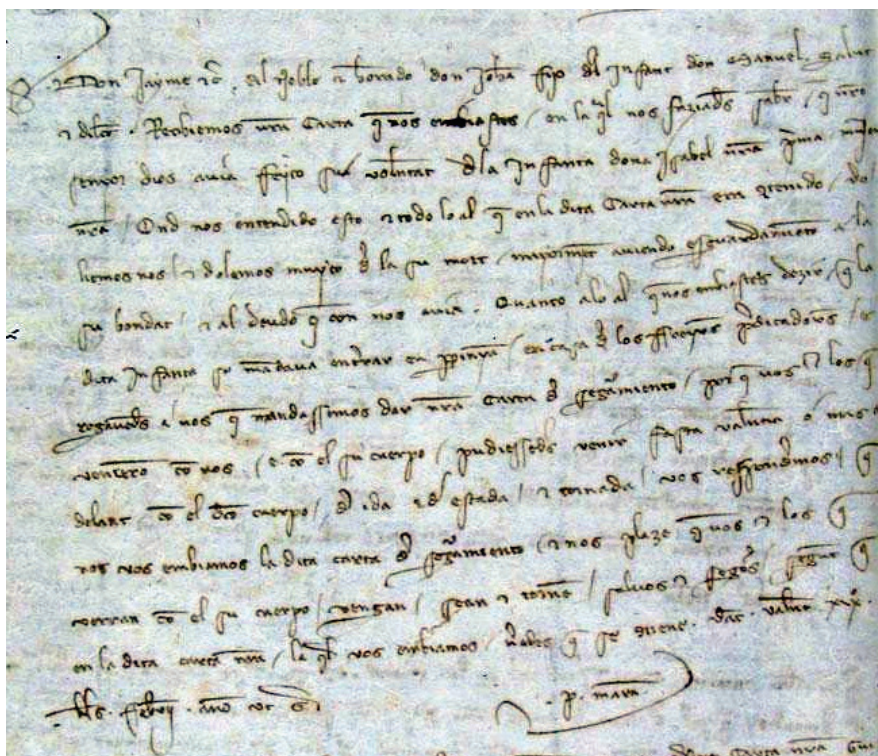 Don Jayme etc. al noble et honrado don Johan fijo del Infant don Manuel. Salut
et dilec. Recibiemos vra Carta q nos embiastes en la ql nos faziads saber q nro
senyor dios avia feyto su voluntat d la Infanta dona Isabel vra prima muller
vra Ond nos entendido esto et todo lo al q en la dita Carta vra era
nos et dolemos muyto d la su mort mayorment aviendo esguardamiento a la
su bondat et al deudo q con nos avia. Quanto alo al q nos embiastes dezir q la
dita Infanta se mandava entrar en en casa d los freyres predicadors e
rogavads a nos q mandassemos dar nra Carta d segamiento por q vos et los q
con vos e con el su cuerpo pudiesseds venir fasta valencia o mas a
delant con el dco cuerpo d ida et d estada et tornada vos respondemos q
nos vos embiamos la dita carta d segamiento et nos plaze q vos et los q
verran con el su cuerpo vengan sean et tornen salvos et segos segunt q
en la dita carta nra la ql vos embiamos se . dat. valent xix.
kls. febroarii. ano
p. mara
Carta nra